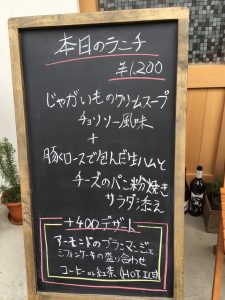 本日のランチ
¥1,200
じゃがいものクリームスープ
チョリソー風味
+
豚ロースで包んだ生ハムと
チーズのパン粉焼き
サラダ添え
+400デザート
アーモンドのブランマンジェと
シフォンケーキの盛り合わせ
コーヒー or 紅茶 (HOT ICE)